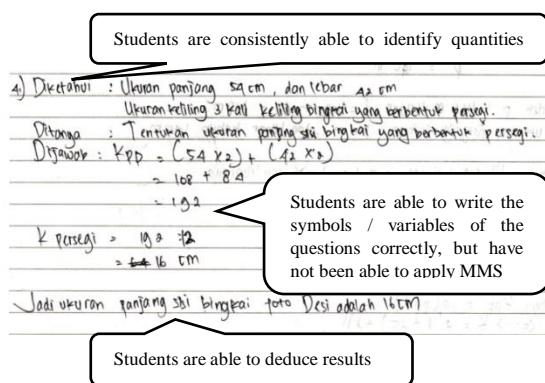 Students are consistently able to identify quantities
4.) Diketahui : Ukuran panjang 54 cm, dan lebar 42 cm
Ukuran keliling 3 kali keliling bingkai yang berbentuk persegi.
Ditanya : Tentukan ukuran panjang sisi bingkai yang berbentuk persegi.
Dijawab : Kpp = (54 x 2) + (42 x 2)
= 108 + 84
= 192
Students are able to write the
symbols / variables of the
questions correctly, but have
not been able to apply MMS
K persegi = 192 : 12
= 16 cm
Jadi ukuran panjang sisi bingkai foto Desi adalah 16 cm
Students are able to deduce results